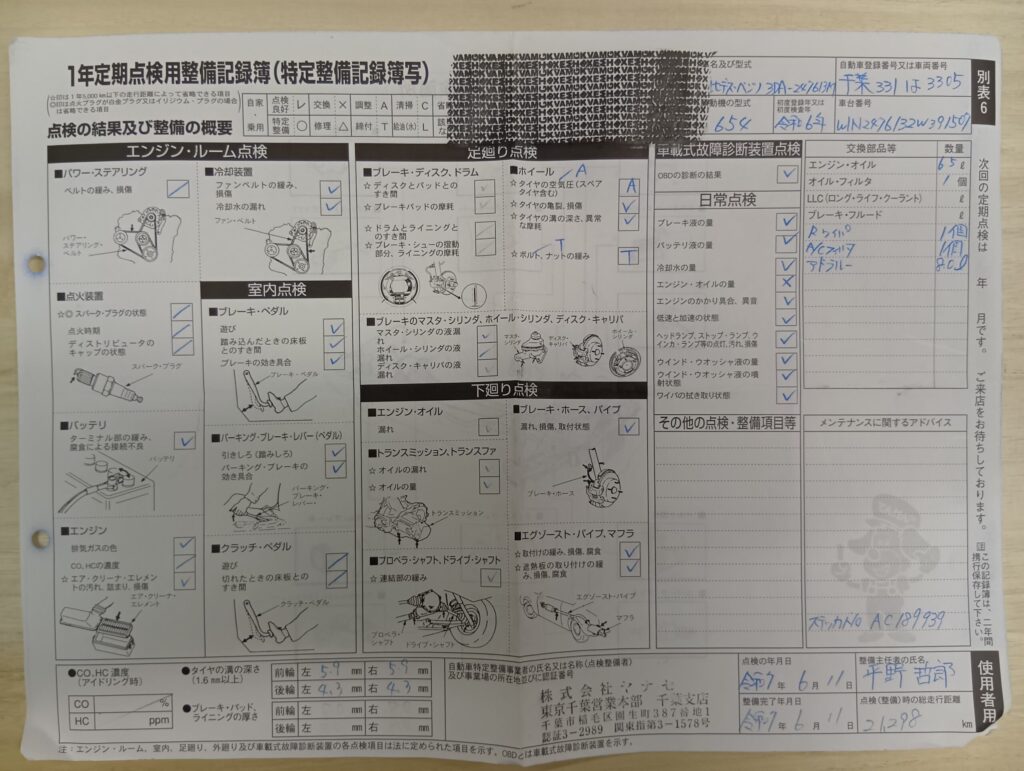 1年定期点検用整備記録簿(特定整備記録簿写)
☆印は1年5,000km以下の走行距離によって省略できる項目
◎印は点火プラグが白金プラグ又はイリジウム・プラグの場合は省略できる項目
自家・乗用
点検良好 レ 交換 × 調整 A 清掃 C 省略
特定整備 ○ 修理 △ 締付 T 給油(水) L 該
YAMOK
名及び型式
3DA-247613M
動機の型式
654
自動車登録番号又は車両番号
千葉 331 は 3305
初度登録年又は初度検査年
令和6年
車台番号
W1N2476132W391509
別表6
点検の結果及び整備の概要
エンジン・ルーム点検
■パワー・ステアリング
ベルトの緩み、損傷
パワー・ステアリング・ベルト
■点火装置
☆◎ スパーク・プラグの状態
点火時期
ディストリビュータのキャップの状態
スパーク・プラグ
■バッテリ
ターミナル部の緩み、腐食による接続不良
バッテリ
■エンジン
排気ガスの色
CO,HCの濃度
☆ エア・クリーナ・エレメントの汚れ、詰まり、損傷
エア・クリーナ・エレメント
■冷却装置
ファンベルトの緩み、損傷
冷却水の漏れ
ファン・ベルト
室内点検
■ブレーキ・ペダル
遊び
踏み込んだときの床板とのすき間
ブレーキの効き具合
ブレーキ・ペダル
■パーキング・ブレーキ・レバー(ペダル)
引きしろ(踏みしろ)
パーキング・ブレーキの効き具合
パーキング・ブレーキ・レバー
■クラッチ・ペダル
遊び
切れたときの床板とのすき間
クラッチ・ペダル
足廻り点検
■ブレーキ・ディスク、ドラム
☆ ディスクとパッドとのすき間
☆ ブレーキパッドの摩耗
☆ ドラムとライニングとのすき間
☆ ブレーキ・シューの摺動部分、ライニングの摩耗
■ホイール A
☆ タイヤの空気圧(スペアタイヤ含む) A
☆ タイヤの亀裂、損傷
☆ タイヤの溝の深さ、異常な摩耗
T
☆ ボルト、ナットの緩み T
■ブレーキのマスタ・シリンダ、ホイール・シリンダ、ディスク・キャリパ
マスタ・シリンダの液漏れ
ホイール・シリンダの液漏れ
ディスク・キャリパの液漏れ
マスタ・シリンダ
ディスク・キャリパ
ホイール・シリンダ
下廻り点検
■エンジン・オイル
漏れ
■トランスミッション、トランスファ
☆ オイルの漏れ
☆ オイルの量
トランスミッション
■プロペラ・シャフト、ドライブ・シャフト
☆ 連結部の緩み
プロペラ・シャフト
ドライブ・シャフト
■ブレーキ・ホース、パイプ
漏れ、損傷、取付状態
ブレーキ・ホース
■エグゾースト・パイプ、マフラ
☆ 取付けの緩み、損傷、腐食
☆ 遮熱板の取り付けの緩み、損傷、腐食
エグゾースト・パイプ
マフラ
車載式故障診断装置点検
OBDの診断の結果
日常点検
ブレーキ液の量
バッテリ液の量
冷却水の量
エンジン・オイルの量
エンジンのかかり具合、異音
低速と加速の状態
ヘッドランプ、ストップ・ランプ、ウインカ・ランプ等の点灯、汚れ、損傷
ウインド・ウオッシャ液の量
ウインド・ウオッシャ液の噴射状態
ワイパの拭き取り状態
その他の点検・整備項目等
交換部品等 数量
エンジン・オイル 6.5 ℓ
オイル・フィルタ 1 個
LLC(ロング・ライフ・クーラント) ℓ
ブレーキ・フルード ℓ
Rワイパ 1個
A/Cフィルタ 1個
アドブルー 8.0ℓ
メンテナンスに関するアドバイス
ステッカNo AC189939
次回の定期点検は 年 月です。 ご来店をお待ちしております。
注 この記録簿は、二年間携行保存して下さい。
使用者用
●CO、HC濃度(アイドリング時)
CO %
HC ppm
●タイヤの溝の深さ(1.6mm以上)
前輪 左 5.9 mm 右 5.9 mm
後輪 左 4.3 mm 右 4.3 mm
●ブレーキ・パッド、ライニングの厚さ
前輪 左 mm 右 mm
後輪 左 mm 右 mm
自動車特定整備事業者の氏名又は名称(点検整備者)及び事業場の所在地並びに認証番号
株式会社ヤナセ
東京千葉営業本部 千葉支店
千葉市稲毛区園生町387番地1
認証3-2989 関東指第3-1578号
点検の年月日
令和7年 6月 11日
整備完了年月日
令和7年 6月 11日
整備主任者の氏名
平野 哲郎
点検(整備)時の総走行距離
21,298 km
注:エンジン・ルーム、室内、足廻り、外廻り及び車載式故障診断装置の各点検項目は法に定められた項目を示す。OBDとは車載式故障診断装置を示す。